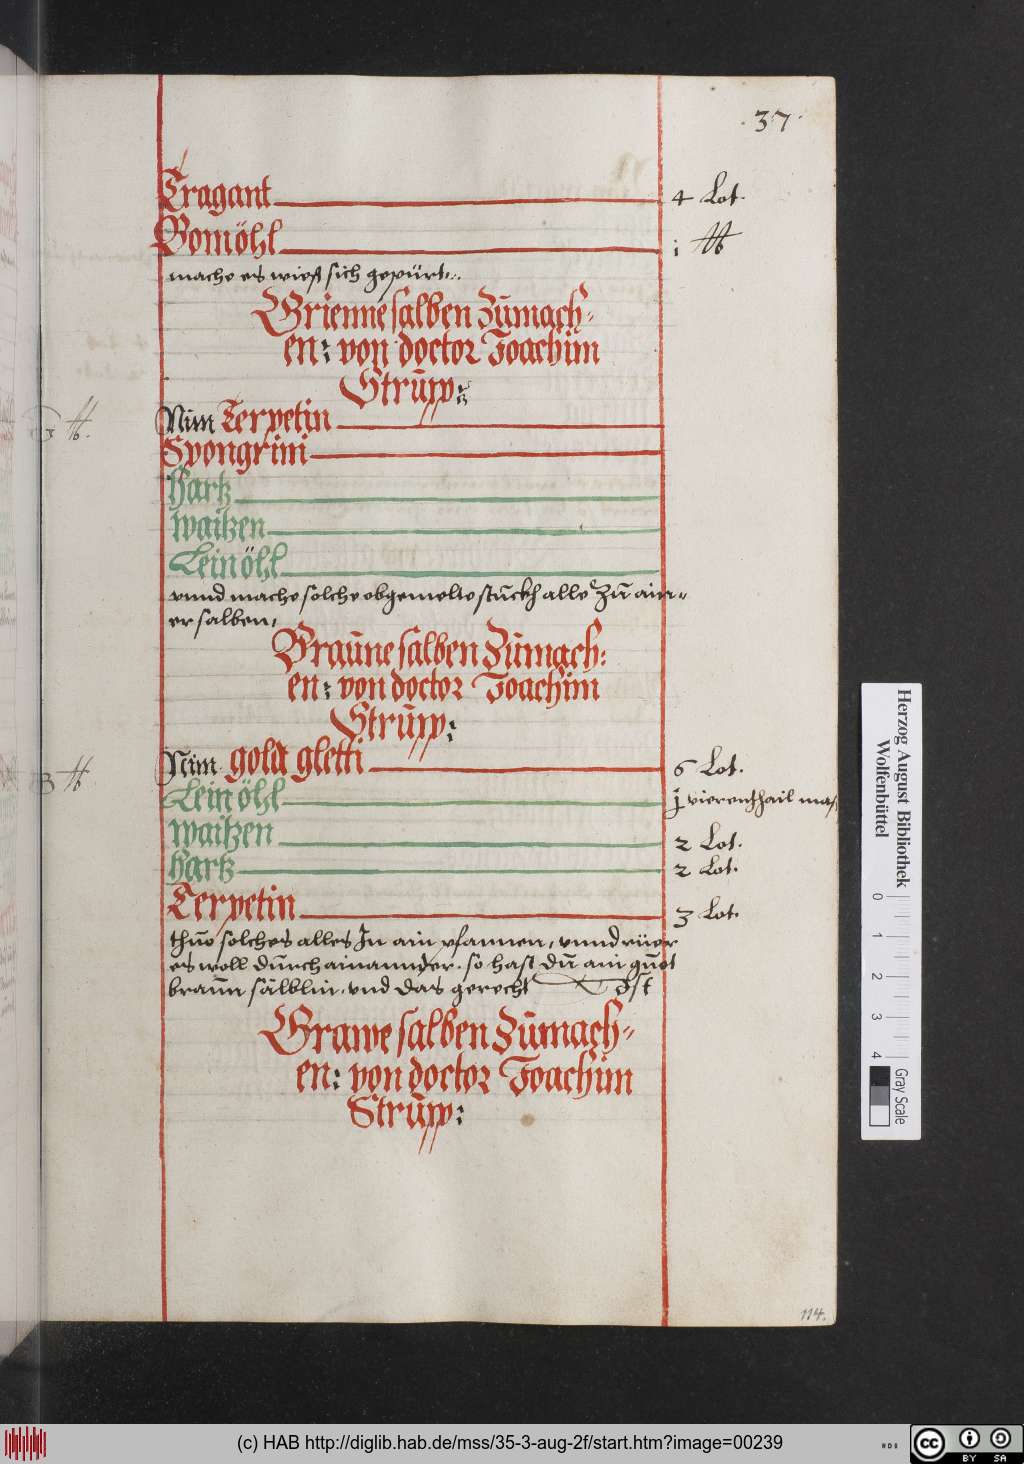 · 37 ·
Tragant 4 Lot.
Bomöhl i ℔
mache es wiest sich gepürt.
Grienne salben Zůmach-
en: von doctor Joachim
Strupp:
Nim Terpetin
Spongrini
hartz
waitzen
Leinöhl
vnnd mache solche obgemelte stuckh alle Zů ain-
er salben,
Braune salben Zůmach:
en: von doctor Joachim
Strupp:
Nim gold gletti 6 Lot.
Lein öhl j vierenthail mas
waitzen 2 Lot.
hartz 2 Lot.
Terpetin 3 Lot.
thuo solches alles In ain pfannen, vnnd rüer
es woll durch ainannder. so hast dů ain guot
braun sälblin. vnd das gerecht Ist
Grawe salben Zůmach-
en: von doctor Joachim
Strupp:
114.
Herzog August Bibliothek
Wolfenbüttel
0 1 2 3 4
Gray Scale
(c) HAB http://diglib.hab.de/mss/35-3-aug-2f/start.htm?image=00239
cc BY SA